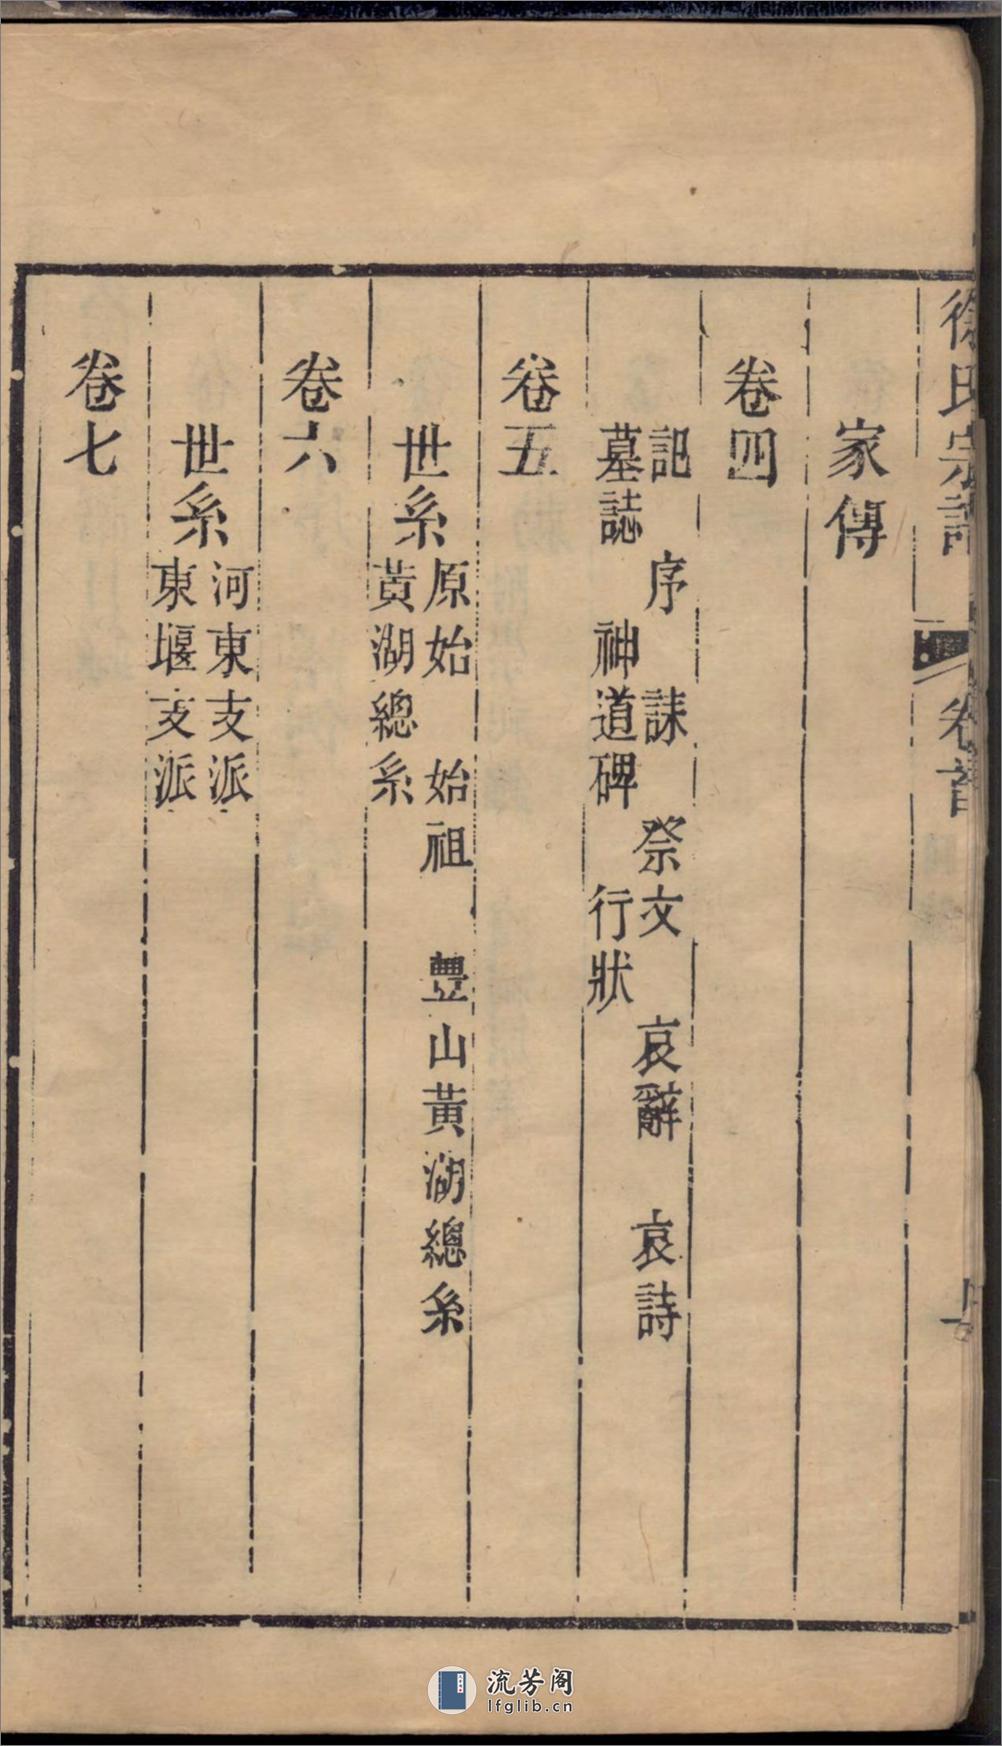 徐氏宗譜
卷首
家傳
卷四
記 序 誄 祭文 哀辭 哀詩
墓誌 神道碑 行狀
卷五
世系
原始 始祖 豐山黃湖總系
黃湖總系
卷六
世系
河東支派
東堰支派
卷七
流芳阁
lfglib.cn